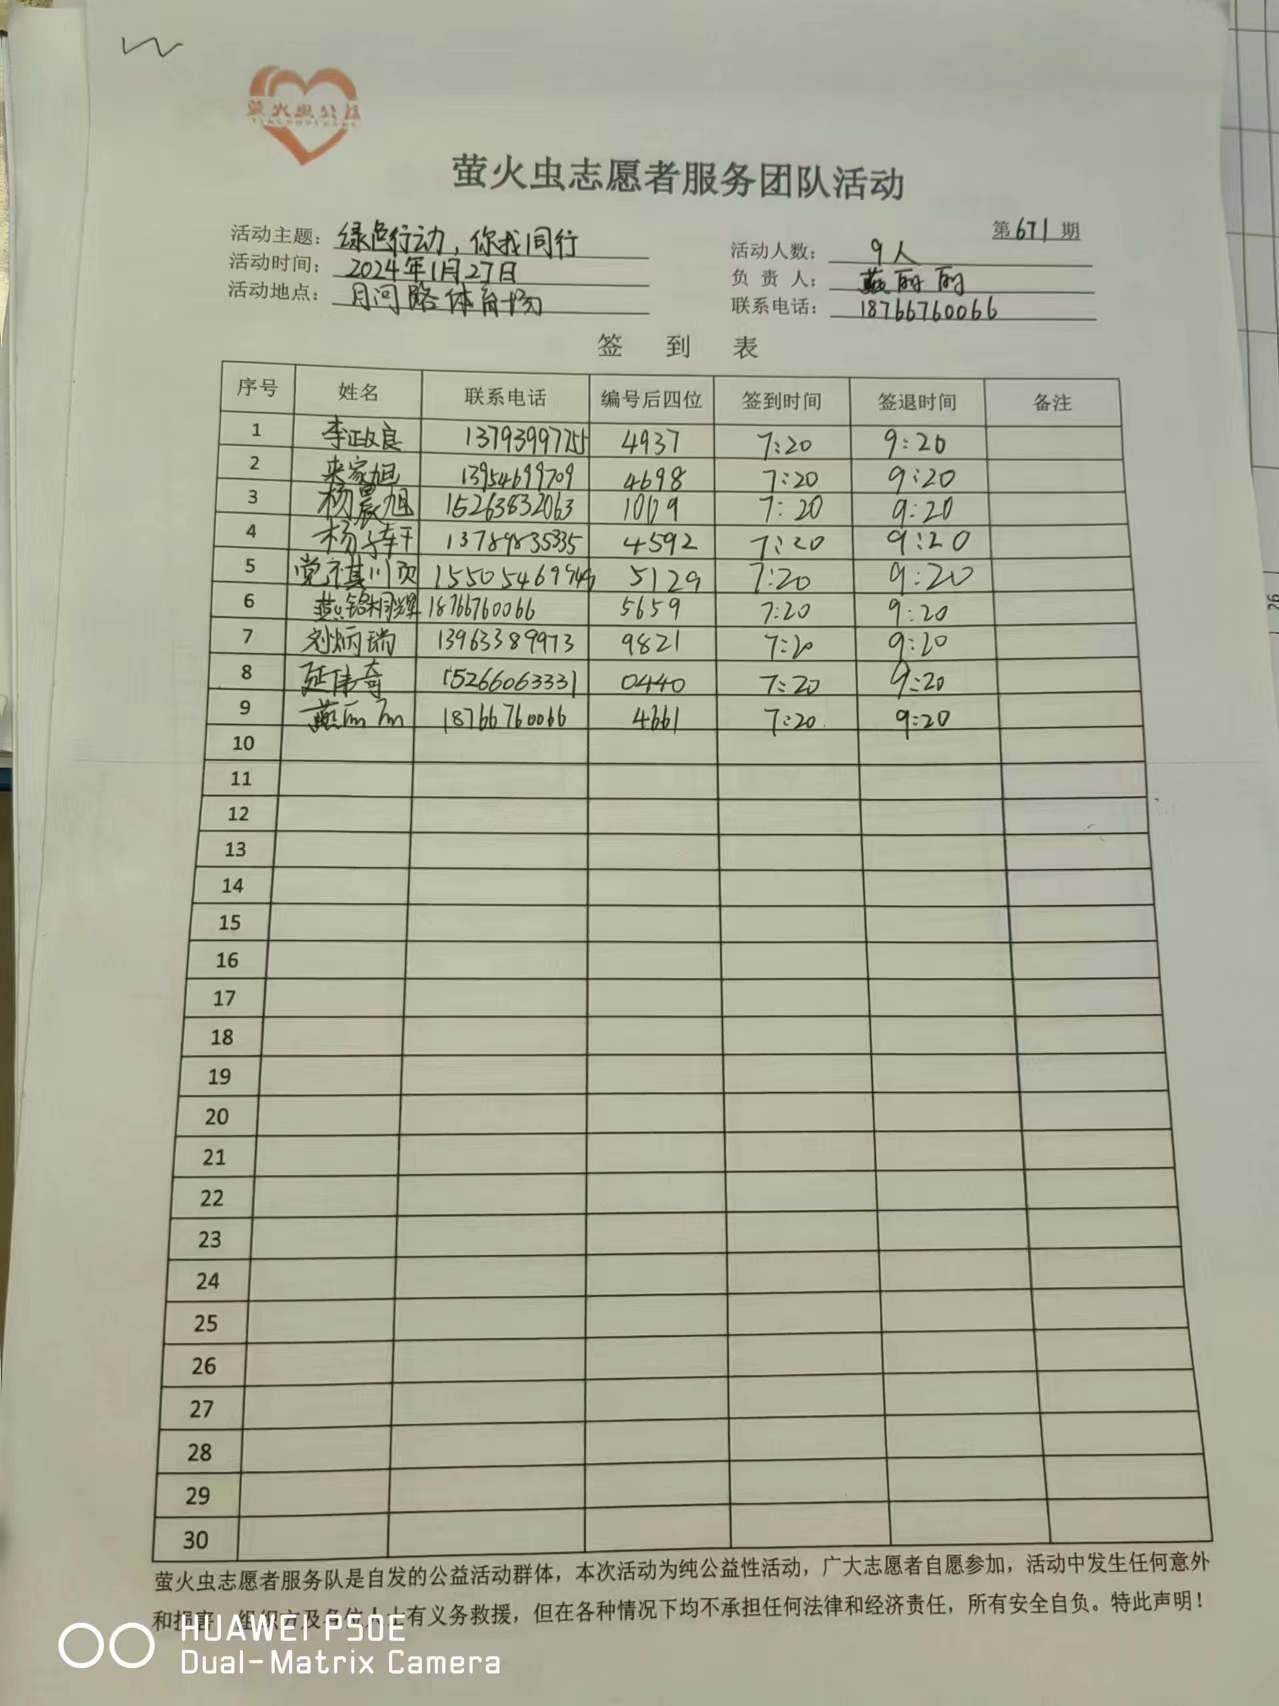 萤火虫公益
萤火虫志愿者服务团队活动
第671期
活动主题：绿色行动，你我同行
活动人数：9人
活动时间：2024年1月27日
负责人：燕丽丽
活动地点：月河路体育场
联系电话：18766760066
签到表
序号 姓名 联系电话 编号后四位 签到时间 签退时间 备注
1 李政良 13793997755 4937 7:20 9:20
2 来家旭 13954699709 4698 7:20 9:20
3 杨晨旭 15263832063 10179 7:20 9:20
4 杨子轩 13789835335 4592 7:20 9:20
5 党祺顺 5129 7:20 9:20
6 18766760066 5659 7:20 9:20
7 刘炳瑞 13963389973 9821 7:20 9:20
8 延伟奇 15266063331 0440 7:20 9:20
9 燕丽丽 18766760066 4661 7:20 9:20
10
11
12
13
14
15
16
17
18
19
20
21
22
23
24
25
26
27
28
29
30
萤火虫志愿者服务队是自发的公益活动群体，本次活动为纯公益性活动，广大志愿者自愿参加，活动中发生任何意外
和损害，组织方及各位人士有义务救援，但在各种情况下均不承担任何法律和经济责任，所有安全自负。特此声明！
HUAWEI P50E
Dual-Matrix Camera
26